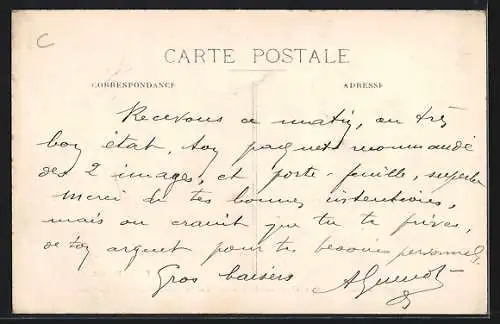 C
CARTE POSTALE
CORRESPONDANCE
ADRESSE
Recevons ce matin, en très
bon état, ton paquet recommandé
des 2 images, et porte-feuille, superbe
merci de tes bonnes intentions,
mais on craint que tu te prives,
de ton argent pour tes besoins personnels.
Gros baisers